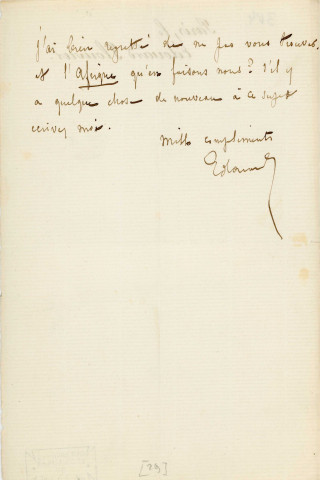 j'ai bien regretté de ne pas vous trouver.
et l'Afrique qu'en faisons nous? s'il y
a quelque chose de nouveau à ce sujet
ecrivez moi.
Mille compliments
[29]